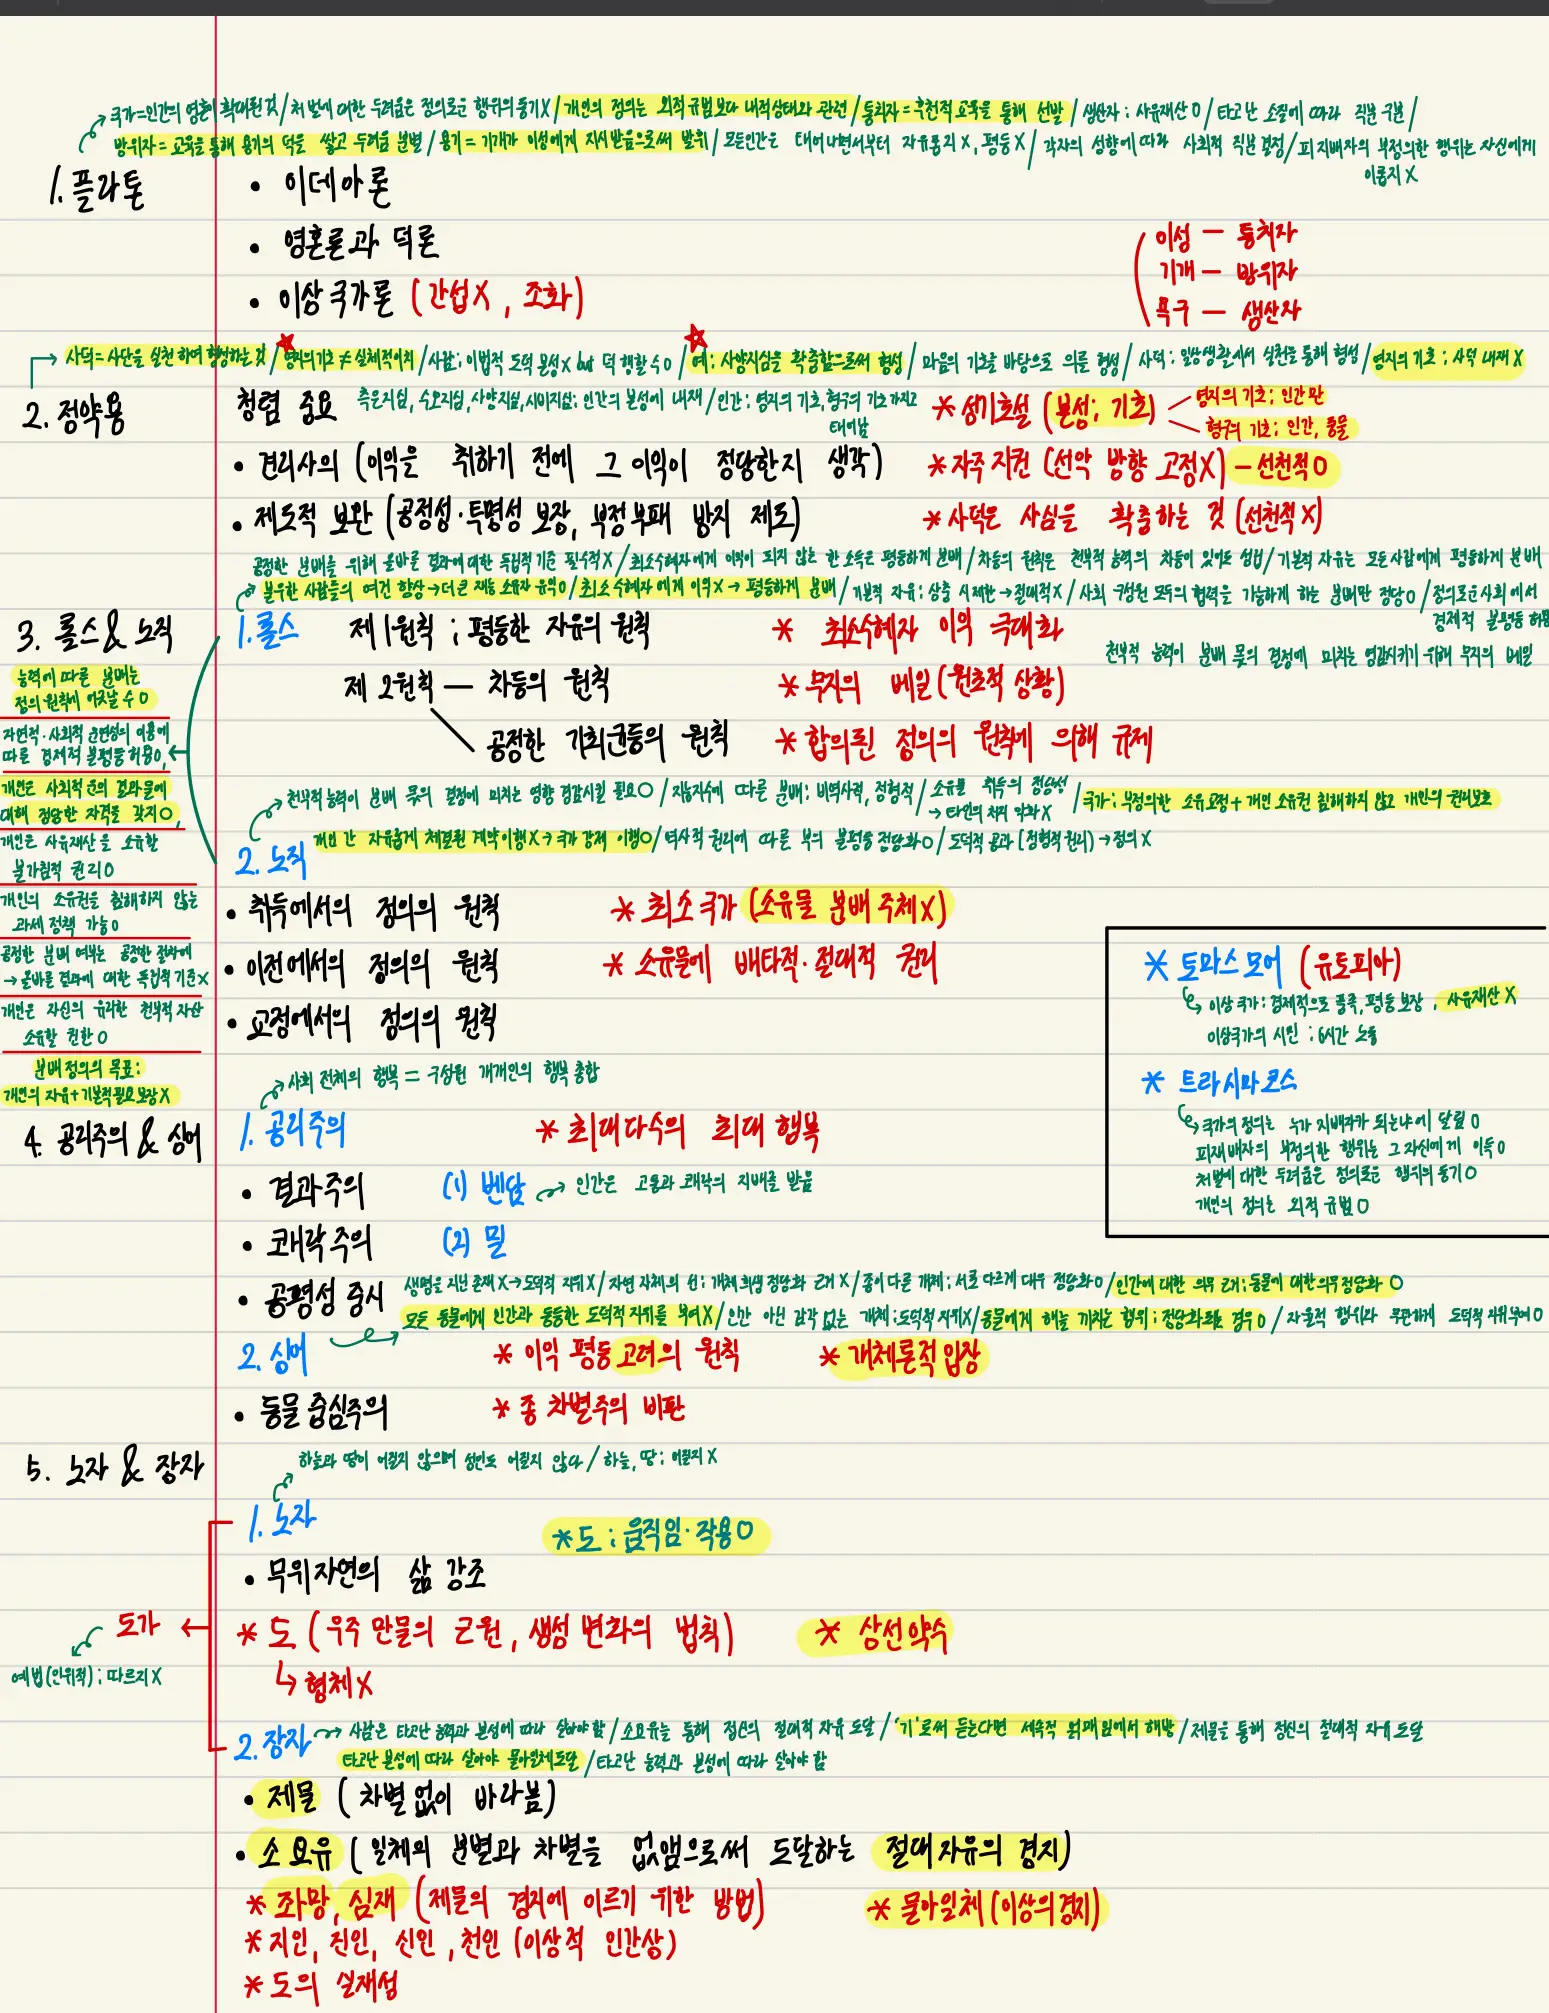 국가=인간의 영혼이 확대된 것 / 처벌에 대한 두려움은 정의로운 행위의 동기X / 개인의 정의는 외적규범보다 내적상태와 관련 / 통치자=후천적교육을 통해 선발 / 생산자 : 사유재산 O / 타고난 소질에 따라 직분 구분 /
방위자=교육을 통해 용기의 덕을 쌓고 두려움 분별 / 용기=기개가 이성에게 지시받음으로써 발휘 / 모든인간은 태어나면서부터 자유롭지X, 평등X / 각자의 성향에 따라 사회적 직분 결정 / 피지배자의 부정의한 행위는 자신에게
이롭지 X
1. 플라톤
• 이데아론
• 영혼론과 덕론
• 이상국가론 (간섭X, 조화)
이성 — 통치자
기개 — 방위자
욕구 — 생산자
사덕=사단을 실천하여 형성하는 것 / 영지의기호≠실체적이치 / 사람:이법적 도덕 본성X but 덕 행할수O / 예:사양지심을 확충함으로써 형성 / 마음의 기호를 바탕으로 의를 형성 / 사덕:일상생활에서 실천을 통해 형성 / 영지의 기호:사덕 내재 X
2. 정약용
청렴 중요
측은지심, 수오지심, 사양지심, 시비지심: 인간의 본성에 내재 / 인간: 영지의 기호, 형구의 기호 가지고
태어남
* 성기호설 (본성: 기호)
영지의 기호: 인간만
형구의 기호: 인간, 동물
• 견리사의 (이익을 취하기 전에 그 이익이 정당한지 생각)
* 자주지권 (선악 방향 고정X) – 선천적O
• 제도적 보완 (공정성·투명성 보장, 부정부패 방지 제도)
* 사덕은 사심을 확충하는 것 (선천적X)
공정한 분배를 위해 올바른 결과에 대한 독립적기준 필수적X / 최소수혜자에게 이익이 되지 않는 한 소득은 평등하게 분배 / 차등의 원칙은 천부적 능력의 차등이 있어도 성립 / 기본적 자유는 모든사람에게 평등하게 분배
불우한 사람들의 여건 향상→더 큰 재능 소유자 유익O / 최소수혜자에게 이익X→평등하게 분배 / 기본적 자유: 상충 시 제한→절대적X / 사회 구성원 모두의 협력을 가능하게 하는 분배만 정당O / 정의로운사회에서
경제적 불평등 허용
3. 롤스 & 노직
1. 롤스
제 1원칙 ; 평등한 자유의 원칙
* 최소수혜자 이익 극대화
천부적 능력이 분배 몫의 결정에 미치는 영향 위해 무지의 베일
능력에 따른 분배는
정의 원칙에 어긋날 수 O
제 2원칙 — 차등의 원칙
* 무지의 베일 (원초적 상황)
자연적·사회적 우연성의 이용에
따른 경제적 불평등허용O,
공정한 기회균등의 원칙
* 합의된 정의의 원칙에 의해 규제
개인은 사회적 운의 결과물에
대해 정당한 자격을 갖지O,
천부적능력이 분배 몫의 결정에 미치는 영향 경감시킬 필요O / 지능지수에 따른 분배: 비역사적, 정형적 / 소유물 취득의 정당성
→ 타인의 처지 악화X
국가: 부정의한 소유교정+개인 소유권 침해하지 않고 개인의 권리보호
개인 간 자유롭게 체결된 계약이행X→국가 강제 이행O / 역사적 권리에 따른 부의 불평등 정당화O / 도덕적 공과 (정형적권리)→정의X
2. 노직
개인은 사유재산을 소유할
불가침적 권리O
• 취득에서의 정의의 원칙
* 최소국가 (소유물 분배 주체X)
개인의 소유권을 침해하지 않는
과세 정책 가능O
• 이전에서의 정의의 원칙
* 소유물에 배타적·절대적 권리
공정한 분배 여부는 공정한 절차에
→ 올바른 결과에 대한 독립적 기준X
• 교정에서의 정의의 원칙
개인은 자신의 유리한 천부적 자산
소유할 권한 O
분배정의의 목표:
개인의 자유+기본적필요보장X
* 토마스모어 (유토피아)
이상국가: 경제적으로 풍족, 평등보장, 사유재산 X
이상국가의 시민 : 6시간 노동
* 트라시마코스
국가의 정의는 누가 지배자가 되는냐에 달림O
피재배자의 부정의한 행위는 그 자신에게 이득O
처벌에 대한 두려움은 정의로운 행위의 동기O
개인의 정의는 외적규범O
사회 전체의 행복 = 구성원 개개인의 행복 총합
4. 공리주의 & 싱어
1. 공리주의
* 최대다수의 최대 행복
• 결과주의
(1) 벤담
인간은 고통과 쾌락의 지배를 받음
• 쾌락주의
(2) 밀
• 공평성 중시
생명을 지닌 존재X→도덕적 지위X / 자연 자체의 선: 개체 희생 정당화 근거X / 종이 다른 개체: 서로 다르게 대우 정당화O / 인간에 대한 의무 근거: 동물에 대한의무정당화 O
모든 동물에게 인간과 동등한 도덕적지위를 부여X / 인간 아닌 감각 없는 개체: 도덕적지위X / 동물에게 해를 끼치는 행위: 정당화되는 경우O / 자율적 행위자 무관하게 도덕적 지위부여O
2. 싱어
* 이익 평등고려의 원칙
* 개체론적입장
• 동물중심주의
* 종 차별주의 비판
5. 노자 & 장자
하늘과 땅이 어질지 않으며 성인도 어질지 않다 / 하늘, 땅: 어질지X
1. 노자
* 도 : 움직임·작용O
• 무위자연의 삶 강조
도가
* 도 (우주 만물의 근원, 생성 변화의 법칙)
* 상선약수
예법(인위적): 따르지X
↳ 형체X
2. 장자
사람은 타고난 능력과 본성에 따라 살아야 함 / 소요유를 통해 정신의 절대적 자유 도달 / '기'로써 듣는다면 세속적 얽매임에서 해방 / 제물을 통해 정신의 절대적 자유 도달
타고난 본성에 따라 살아야 물아일체도달 / 타고난 능력과 본성에 따라 살아야 함
• 제물 (차별없이 바라봄)
• 소요유 (일체의 분별과 차별을 없앰으로써 도달하는 절대자유의 경지)
* 좌망, 심재 (제물의 경지에 이르기 위한 방법)
* 물아일체 (이상의경지)
* 지인, 진인, 신인, 천인 (이상적 인간상)
* 도의 실재성